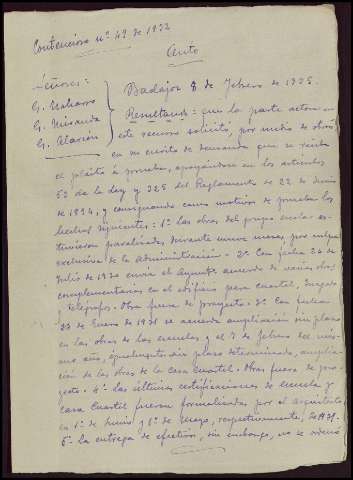 Contencioso nº 49 de 1932
Auto
Señores:
G. Navarro
G. Miranda
G. Alarcón
Badajoz 8 de Febrero de 1935.
Resultando: que la parte actora en
este recurso solicitó, por medio de otrosí
en su escrito de demanda que se reciba
el pleito a prueba, apoyándose en los artículos
52 de la ley y 325 del Reglamento de 22 de Junio
de 1894, y consignando como motivos de prueba los
hechos siguientes: 1º las obras del grupo escolar es-
tuvieron paralizadas durante nueve meses, por culpa
exclusiva de la Administración - 2º Con fecha 26 de
Julio de 1930 envía el Ayuntº acuerdo de varias obras
complementarias en el edificio para cuartel, Juzgado
y Telégrafos. Obra fuera de proyecto - 3º Con fecha
23 de Enero de 1931 se acuerda ampliación sin plazo
en las obras de las escuelas y el 7 de Febrero del mis-
mo año, igualmente sin plazo determinado, amplia-
ción de las obras de la casa cuartel. Obras fuera de pro-
yecto - 4º las últimas certificaciones de escuela y
casa cuartel fueron formalizadas por el arquitecto
en 1º de Junio y 1º de Mayo, respectivamente, de 1931.
5º la entrega de efectivo, sin embargo, no se ordenó